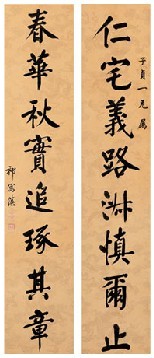 子貞一兄屬
仁宅義路淋慎爾止
春華秋實追琢其章
祁寯藻